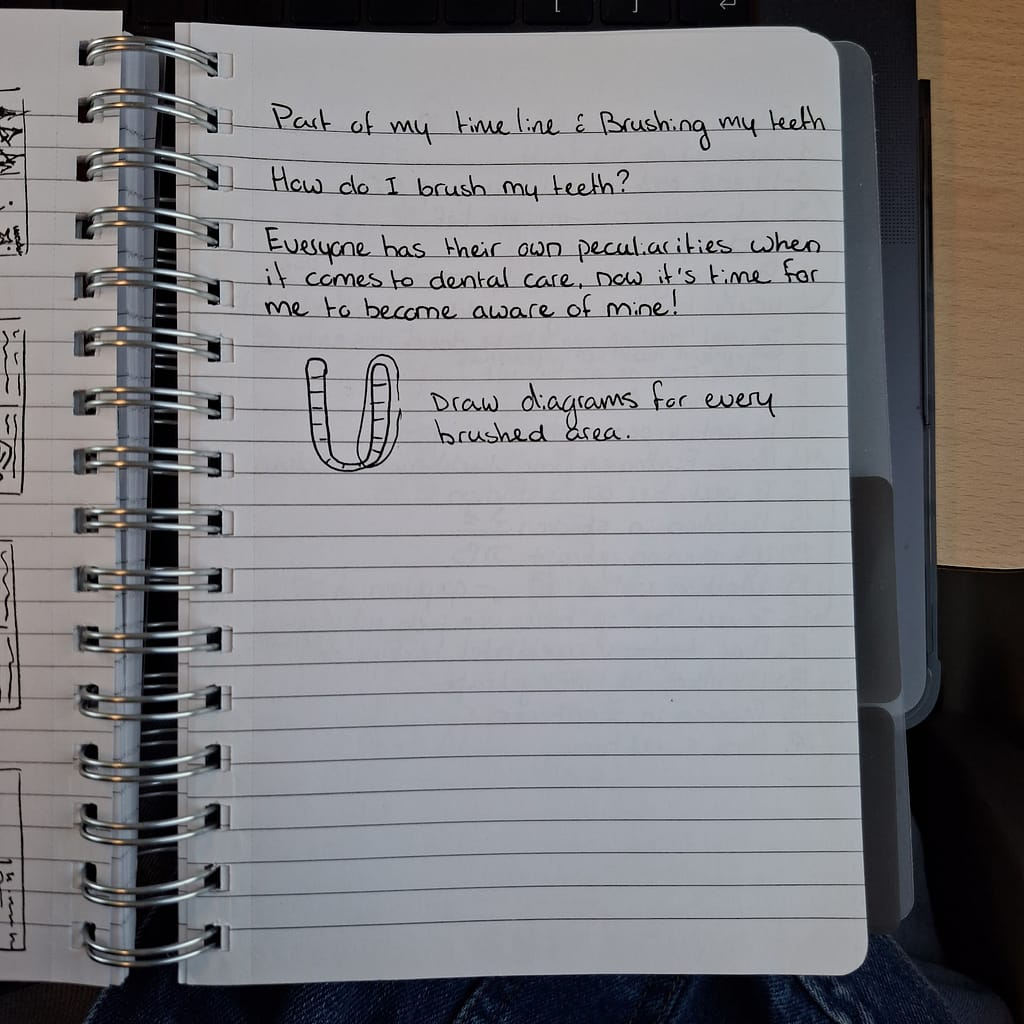 Part of my timeline : Brushing my teeth
How do I brush my teeth?
Everyone has their own peculiarities when
it comes to dental care, now it's time for
me to become aware of mine!
Draw diagrams for every
brushed area.
[
]